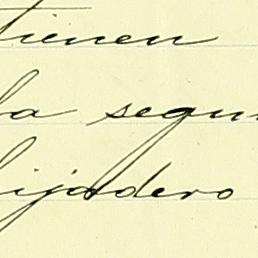 tienen
la segu
hijadero